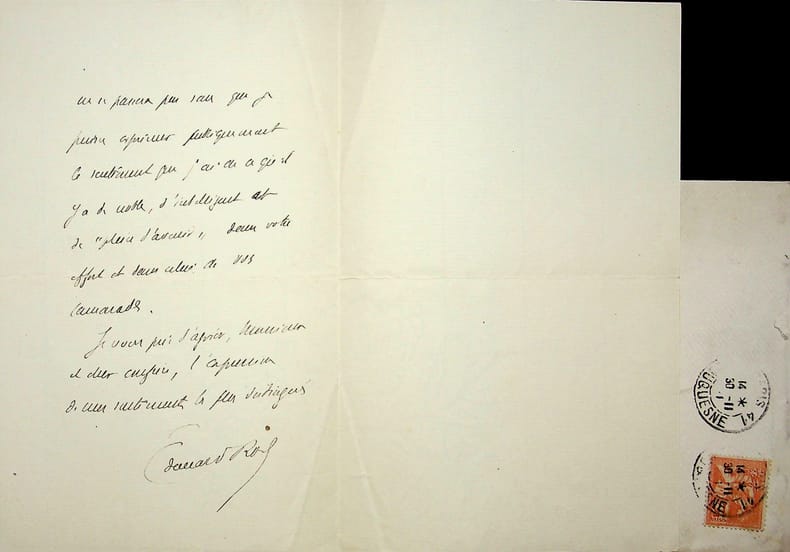 ne se passera pas sans que je
puisse exprimer publiquement
le sentiment que j'ai de ce qu'il
y a de noble, d'intelligent et
de "plein d'avenir", dans votre
effort et dans celui de vos
camarades.
Je vous prie d'agréer, Monsieur
et cher confrère, l'expression
de mes sentiments les plus distingués
Edouard Rod
41
14 *
30 -11
DUQUESNE
41
14 *
30 -11